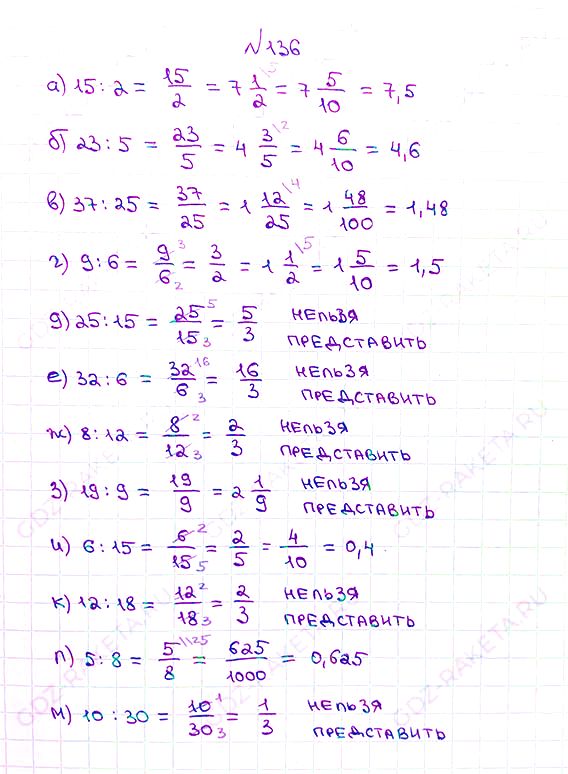 №136
а) 15 : 2 = 15/2 = 7 1/2 \5 = 7 5/10 = 7,5
б) 23 : 5 = 23/5 = 4 3/5 \2 = 4 6/10 = 4,6
в) 37 : 25 = 37/25 = 1 12/25 \4 = 1 48/100 = 1,48
г) 9 : 6 = 9 3/6 2 = 3/2 = 1 1/2 \5 = 1 5/10 = 1,5
д) 25 : 15 = 25 5/15 3 = 5/3 НЕЛЬЗЯ
ПРЕДСТАВИТЬ
е) 32 : 6 = 32 16/6 3 = 16/3 НЕЛЬЗЯ
ПРЕДСТАВИТЬ
ж) 8 : 12 = 8 2/12 3 = 2/3 НЕЛЬЗЯ
ПРЕДСТАВИТЬ
з) 19 : 9 = 19/9 = 2 1/9 НЕЛЬЗЯ
ПРЕДСТАВИТЬ
и) 6 : 15 = 6 2/15 5 = 2/5 = 4/10 = 0,4
к) 12 : 18 = 12 2/18 3 = 2/3 НЕЛЬЗЯ
ПРЕДСТАВИТЬ
л) 5 : 8 = 5/8 \125 = 625/1000 = 0,625
м) 10 : 30 = 10 1/30 3 = 1/3 НЕЛЬЗЯ
ПРЕДСТАВИТЬ
GDZ-RAKETA.RU